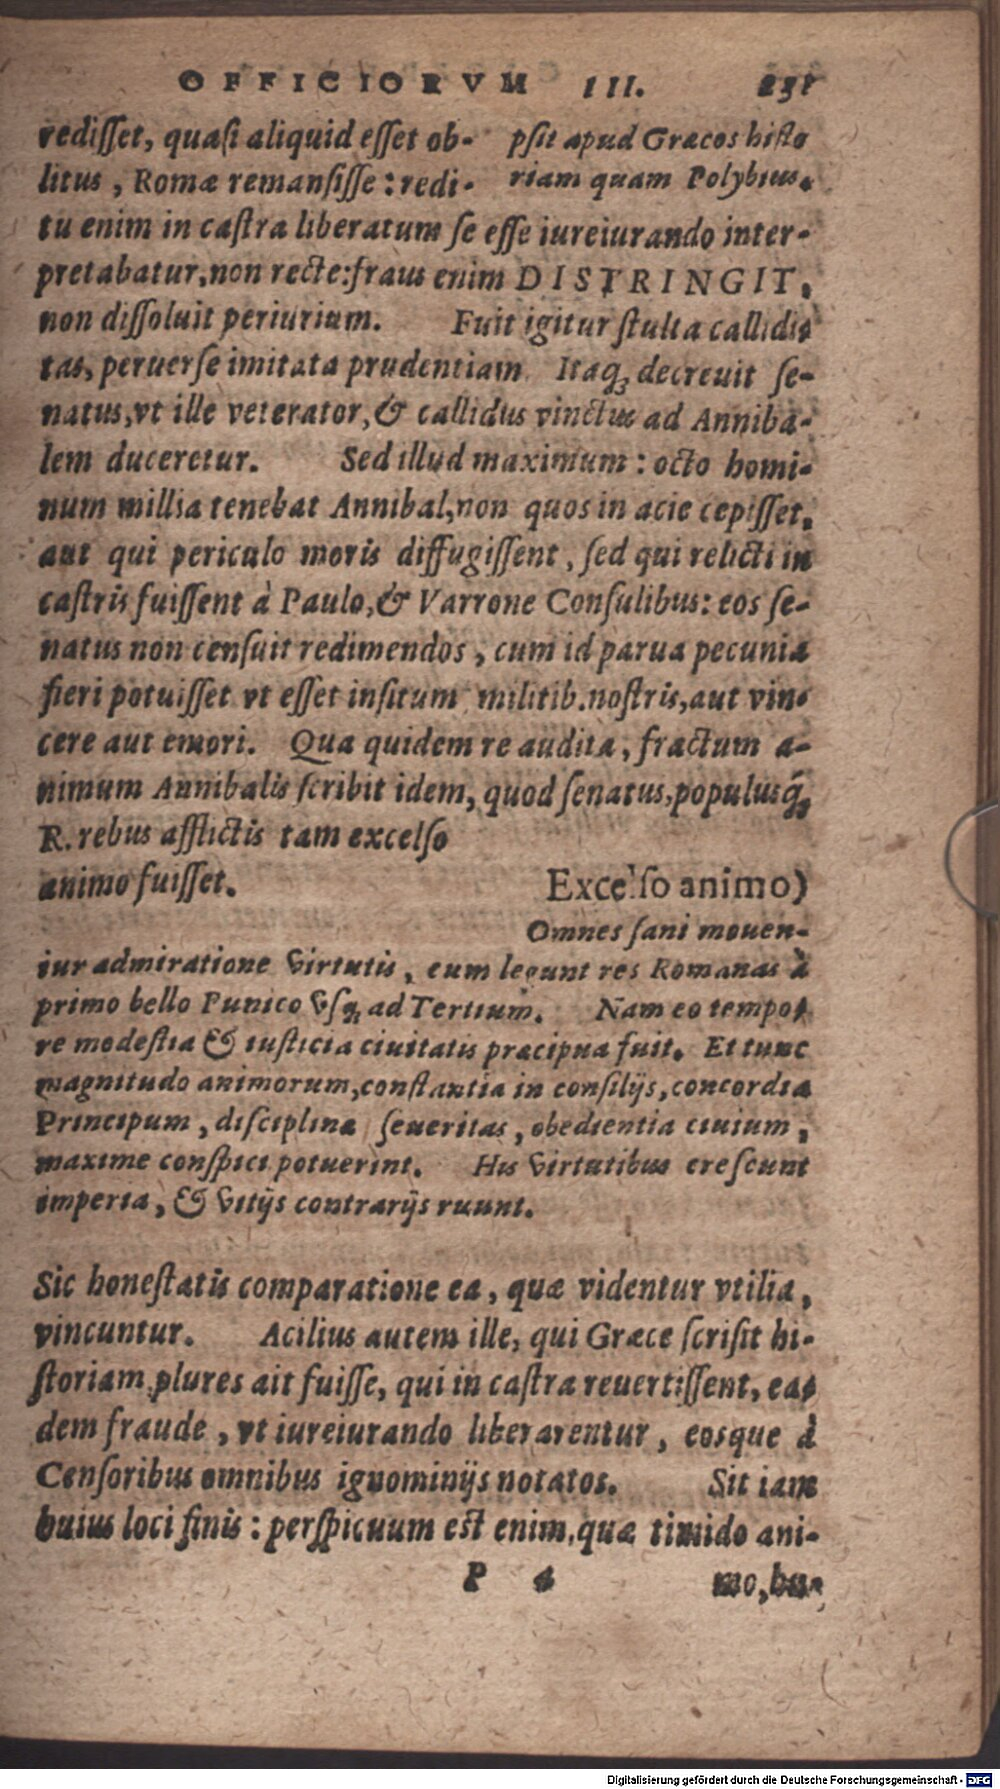 OFFICIORVM III. 231
rediſſet, quaſi aliquid eſſet ob-
litus, Romæ remanſiſſe: redi-
pſit apud Græcos hiſto
riam quam Polybius.
tu enim in caſtra liberatum ſe eſſe iureiurando inter-
pretabatur, non recte: fraus enim DISTRINGIT,
non diſſoluit periurium. Fuit igitur ſtulta callidi
tas, peruerſe imitata prudentiam. Itaq; decreuit ſe-
natus, vt ille veterator, & callidus vinctus ad Anniba-
lem duceretur. Sed illud maximum: octo homi-
num millia tenebat Annibal, non quos in acie cepiſſet,
aut qui periculo moris diffugiſſent, ſed qui relicti in
caſtris fuiſſent à Paulo, & Varrone Conſulibus: eos ſe-
natus non cenſuit redimendos, cum id parua pecunia
fieri potuiſſet vt eſſet inſitum militib. noſtris, aut vin-
cere aut emori. Qua quidem re audita, fractum a-
nimum Annibalis ſcribit idem, quod ſenatus, populusq́;
R. rebus afflictis tam excelſo
animo fuiſſet.
Excelſo animo)
Omnes ſani mouen-
tur admiratione virtutis, cum legunt res Romanas à
primo bello Punico vſq; ad Tertium. Nam eo tempo-
re modeſtia & iuſticia ciuitatis præcipua fuit. Et tunc
magnitudo animorum, conſtantia in conſilijs, concordia
Principum, diſciplina ſeueritas, obedientia ciuium,
maxime conſpici potuerint. His virtutibus creſcunt
imperia, & vitijs contrarijs ruunt.
Sic honeſtatis comparatione ea, quæ videntur vtilia,
vincuntur. Acilius autem ille, qui Græce ſcriſit hi-
ſtoriam, plures ait fuiſſe, qui in caſtra reuertiſſent, ea-
dem fraude, vt iureiurando liberarentur, eosque à
Cenſoribus omnibus ignominijs notatos. Sit iam
huius loci finis: perſpicuum eſt enim, quæ timido ani-
P 4 mo, hu-
Digitalisierung gefördert durch die Deutsche Forschungsgemeinschaft - DFG